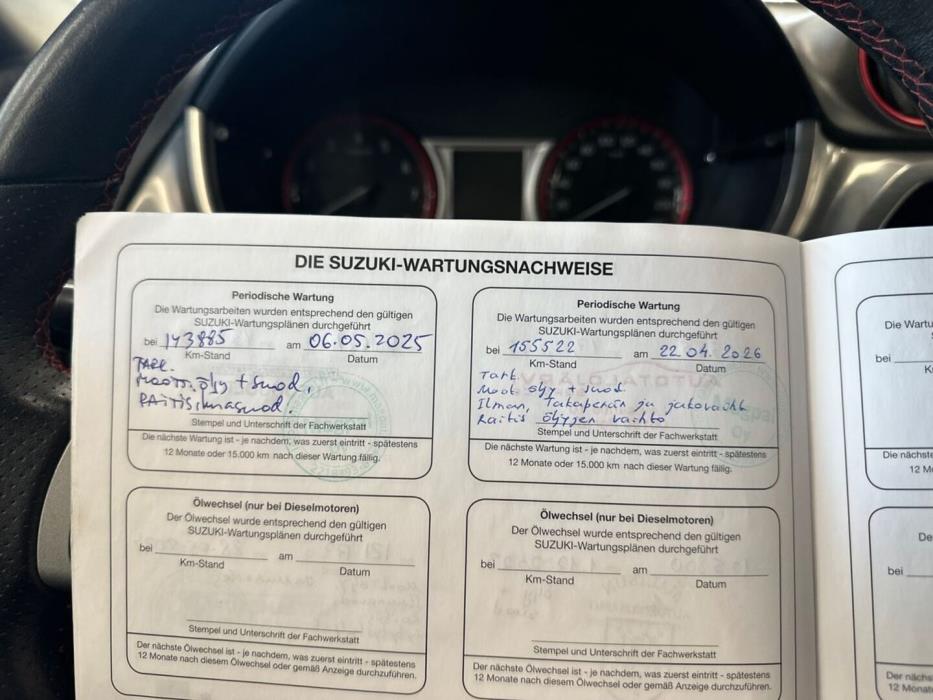 DIE SUZUKI-WARTUNGSNACHWEISE
Periodische Wartung
Die Wartungsarbeiten wurden entsprechend den gültigen
SUZUKI-Wartungsplänen durchgeführt
bei 143885 am 06.05.2025
Km-Stand Datum
TARK.
Moott. öljy + suod.
RAITISilmasuod.
Stempel und Unterschrift der Fachwerkstatt
Die nächste Wartung ist - je nachdem, was zuerst eintritt - spätestens
12 Monate oder 15.000 km nach dieser Wartung fällig.
Periodische Wartung
Die Wartungsarbeiten wurden entsprechend den gültigen
SUZUKI-Wartungsplänen durchgeführt
bei 155522 am 22.04.2026
Km-Stand Datum
Tark.
Moot öljy + suod.
Ilman, Takaperän ja jakovaiht
Raitis öljyjen vaihto
Stempel und Unterschrift der Fachwerkstatt
Die nächste Wartung ist - je nachdem, was zuerst eintritt - spätestens
12 Monate oder 15.000 km nach dieser Wartung fällig.
Ölwechsel (nur bei Dieselmotoren)
Der Ölwechsel wurde entsprechend den gültigen
SUZUKI-Wartungsplänen durchgeführt
bei am
Km-Stand Datum
Stempel und Unterschrift der Fachwerkstatt
Der nächste Ölwechsel ist - je nachdem, was zuerst eintritt - spätestens
12 Monate nach diesem Ölwechsel oder gemäß Anzeige durchzuführen.
Ölwechsel (nur bei Dieselmotoren)
Der Ölwechsel wurde entsprechend den gültigen
SUZUKI-Wartungsplänen durchgeführt
bei am
Km-Stand Datum
Stempel und Unterschrift der Fachwerkstatt
Der nächste Ölwechsel ist - je nachdem, was zuerst eintritt - spätestens
12 Monate nach diesem Ölwechsel oder gemäß Anzeige durchzuführen.
Die Wartu
bei
Die nächste
12 M
De
bei
Der nächs
12 Monate